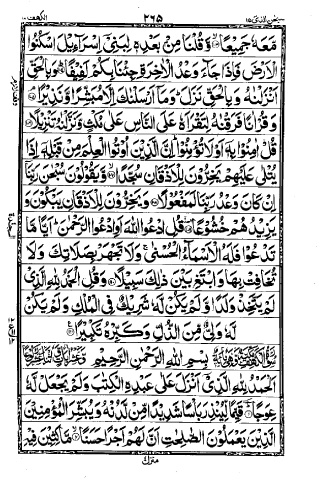 سبحن الذی ١٥
٢٦٥
الکهف ١٨
مَّعَهٗ جَمِیْعًا ۙ وَّ قُلْنَا مِنْۢ بَعْدِهٖ لِبَنِیْۤ اِسْرَآءِیْلَ اسْكُنُوا
الْاَرْضَ فَاِذَا جَآءَ وَعْدُ الْاٰخِرَةِ جِئْنَا بِكُمْ لَفِیْفًا ؕ وَ بِالْحَقِّ
اَنْزَلْنٰهُ وَ بِالْحَقِّ نَزَلَ ؕ وَ مَاۤ اَرْسَلْنٰكَ اِلَّا مُبَشِّرًا وَّ نَذِیْرًا ۘ
وَ قُرْاٰنًا فَرَقْنٰهُ لِتَقْرَاَهٗ عَلَی النَّاسِ عَلٰی مُكْثٍ وَّ نَزَّلْنٰهُ تَنْزِیْلًا
قُلْ اٰمِنُوْا بِهٖۤ اَوْ لَا تُؤْمِنُوْا ؕ اِنَّ الَّذِیْنَ اُوْتُوا الْعِلْمَ مِنْ قَبْلِهٖۤ اِذَا
یُتْلٰی عَلَیْهِمْ یَخِرُّوْنَ لِلْاَذْقَانِ سُجَّدًا ۙ وَّ یَقُوْلُوْنَ سُبْحٰنَ رَبِّنَاۤ
اِنْ كَانَ وَعْدُ رَبِّنَا لَمَفْعُوْلًا وَ یَخِرُّوْنَ لِلْاَذْقَانِ یَبْكُوْنَ وَ
یَزِیْدُهُمْ خُشُوْعًا ۩ قُلِ ادْعُوا اللّٰهَ اَوِ ادْعُوا الرَّحْمٰنَ ؕ اَیًّا مَّا
تَدْعُوْا فَلَهُ الْاَسْمَآءُ الْحُسْنٰی ۚ وَ لَا تَجْهَرْ بِصَلَاتِكَ وَ لَا
تُخَافِتْ بِهَا وَ ابْتَغِ بَیْنَ ذٰلِكَ سَبِیْلًا وَ قُلِ الْحَمْدُ لِلّٰهِ الَّذِیْ
لَمْ یَتَّخِذْ وَلَدًا وَّ لَمْ یَكُنْ لَّهٗ شَرِیْكٌ فِی الْمُلْكِ وَ لَمْ یَكُنْ
لَّهٗ وَلِیٌّ مِّنَ الذُّلِّ وَ كَبِّرْهُ تَكْبِیْرًا
بِسْمِ اللّٰهِ الرَّحْمٰنِ الرَّحِیْمِ
اَلْحَمْدُ لِلّٰهِ الَّذِیْۤ اَنْزَلَ عَلٰی عَبْدِهِ الْكِتٰبَ وَ لَمْ یَجْعَلْ لَّهٗ
عِوَجًا ؕ قَیِّمًا لِّیُنْذِرَ بَاْسًا شَدِیْدًا مِّنْ لَّدُنْهُ وَ یُبَشِّرَ الْمُؤْمِنِیْنَ
الَّذِیْنَ یَعْمَلُوْنَ الصّٰلِحٰتِ اَنَّ لَهُمْ اَجْرًا حَسَنًا ۙ مَّاكِثِیْنَ فِیْهِ
منزل